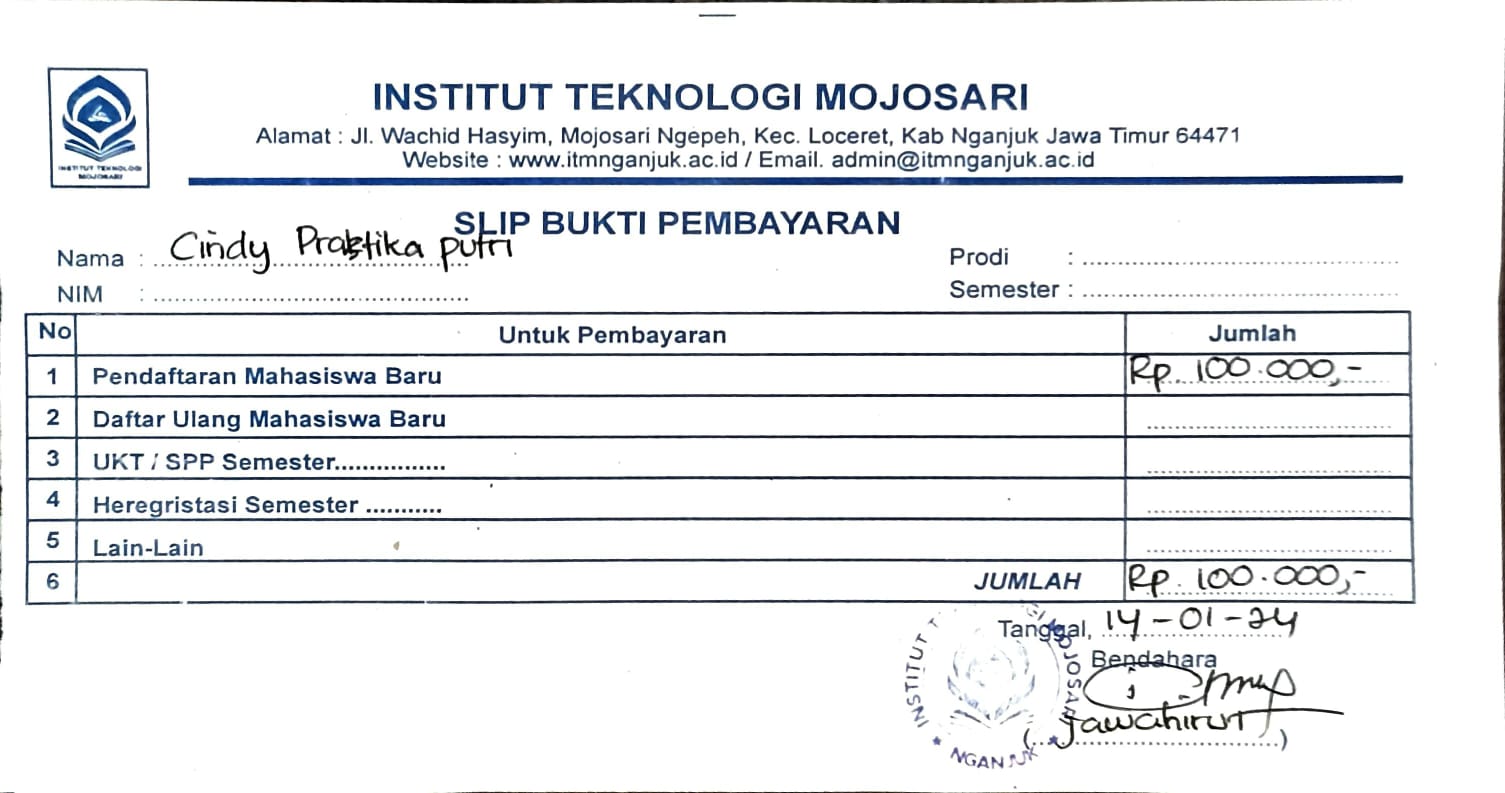 INSTITUT TEKNOLOGI MOJOSARI
INSTITUT TEKNOLOGI MOJOSARI
Alamat : Jl. Wachid Hasyim, Mojosari Ngepeh, Kec. Loceret, Kab Nganjuk Jawa Timur 64471
Website : www.itmnganjuk.ac.id / Email. admin@itmnganjuk.ac.id
SLIP BUKTI PEMBAYARAN
Nama : Cindy Praktika putri
Prodi : ........................................
NIM : ........................................
Semester : ........................................
No Untuk Pembayaran Jumlah
1 Pendaftaran Mahasiswa Baru Rp. 100.000,-
2 Daftar Ulang Mahasiswa Baru ........................................
3 UKT / SPP Semester................ ........................................
4 Heregristasi Semester ........... ........................................
5 Lain-Lain ........................................
6 JUMLAH Rp. 100.000,-
Tanggal, 14-01-24
Bendahara
INSTITUT T GI MOJOSARI
NGANJUK
(Jawahirut)